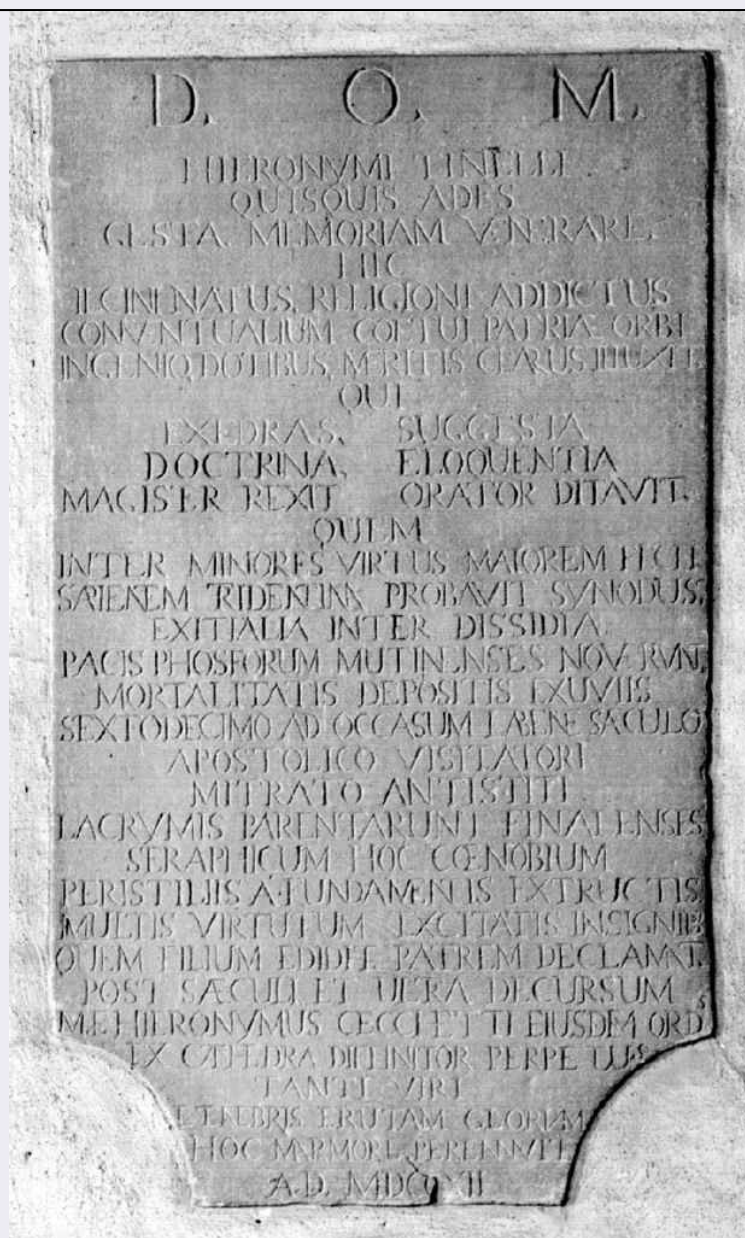 D. O. M.
HIERONYMI TINELLI
QUISQUIS ADES
GESTA, MEMORIAM VENERARE.
HIC
ILCINENATUS, RELIGIONI ADDICTUS
CONVENTUALIUM COETUI, PATRIÆ, ORBI
INGENIO, DOTIBUS, MERITIS CLARUS ILLUXIT.
QUI
EXEDRAS, SUGGESTA
DOCTRINA, ELOQUENTIA
MAGISTER REXIT ORATOR DITAVIT.
QUEM
INTER MINORES VIRTUS MAIOREM FECIT
SAPIENTEM TRIDENTINA PROBAVIT SYNODUS,
EXITIALIA INTER DISSIDIA.
PACIS PHOSFORUM MUTINENSES NOVERUNT,
MORTALITATIS DEPOSITIS EXUVIIS
SEXTODECIMO AD OCCASUM LABENTE SÆCULO
APOSTOLICO VISITATORI
MITRATO ANTISTITI
LACRYMIS PARENTARUNT FINALENSES
SERAPHICUM HOC CŒNOBIUM
PERISTILIIS A FUNDAMENTIS EXTRUCTIS
MULTIS VIRTUTUM EXCITATIS INSIGNIB
QUEM FILIUM EDIDIT PATREM DECLAMAT.
POST SÆCULI ET ULTRA DECURSUM
HIERONYMUS EIUSDEM ORD
EX CATHEDRA DIFFINITOR PERPETUUS
TANTI VIRI
E TENEBRIS ERUTAM GLORIAM
HOC MARMORE PERENNAVIT
A.D.